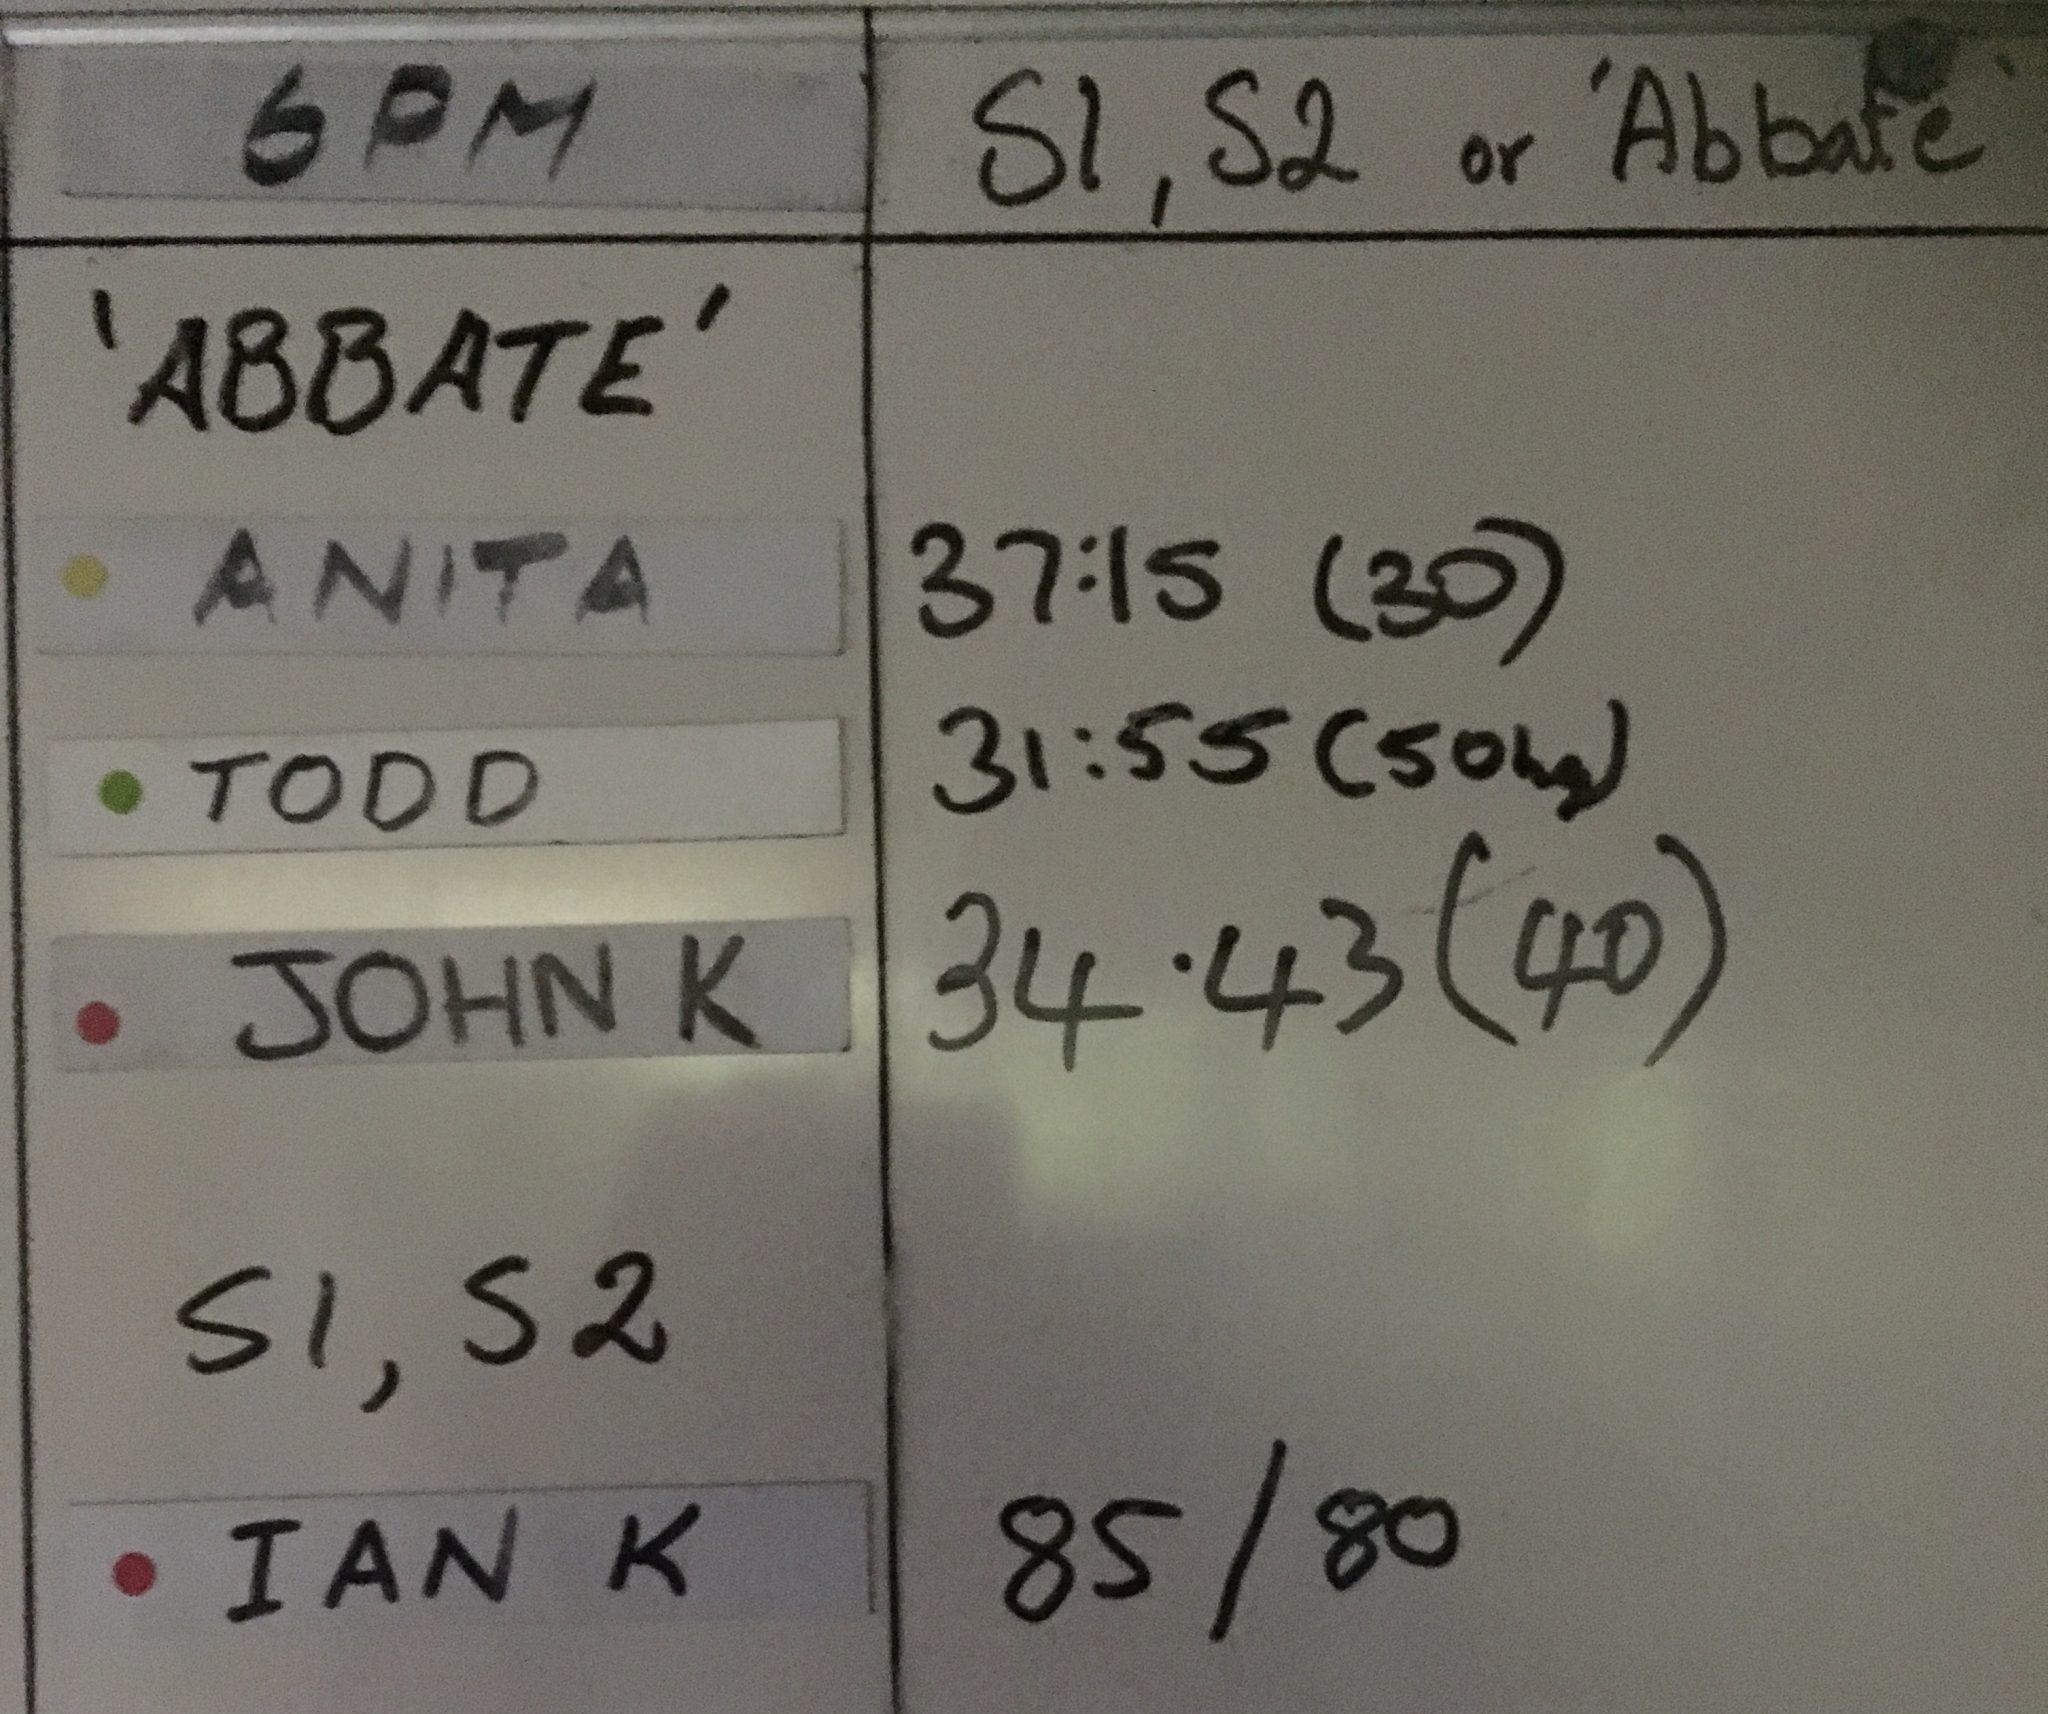 6PM S1, S2 or 'Abbate'
'ABBATE'
ANITA 37:15 (30)
TODD 31:55 (50kg)
JOHN K 34·43 (40)
S1, S2
IAN K 85/80